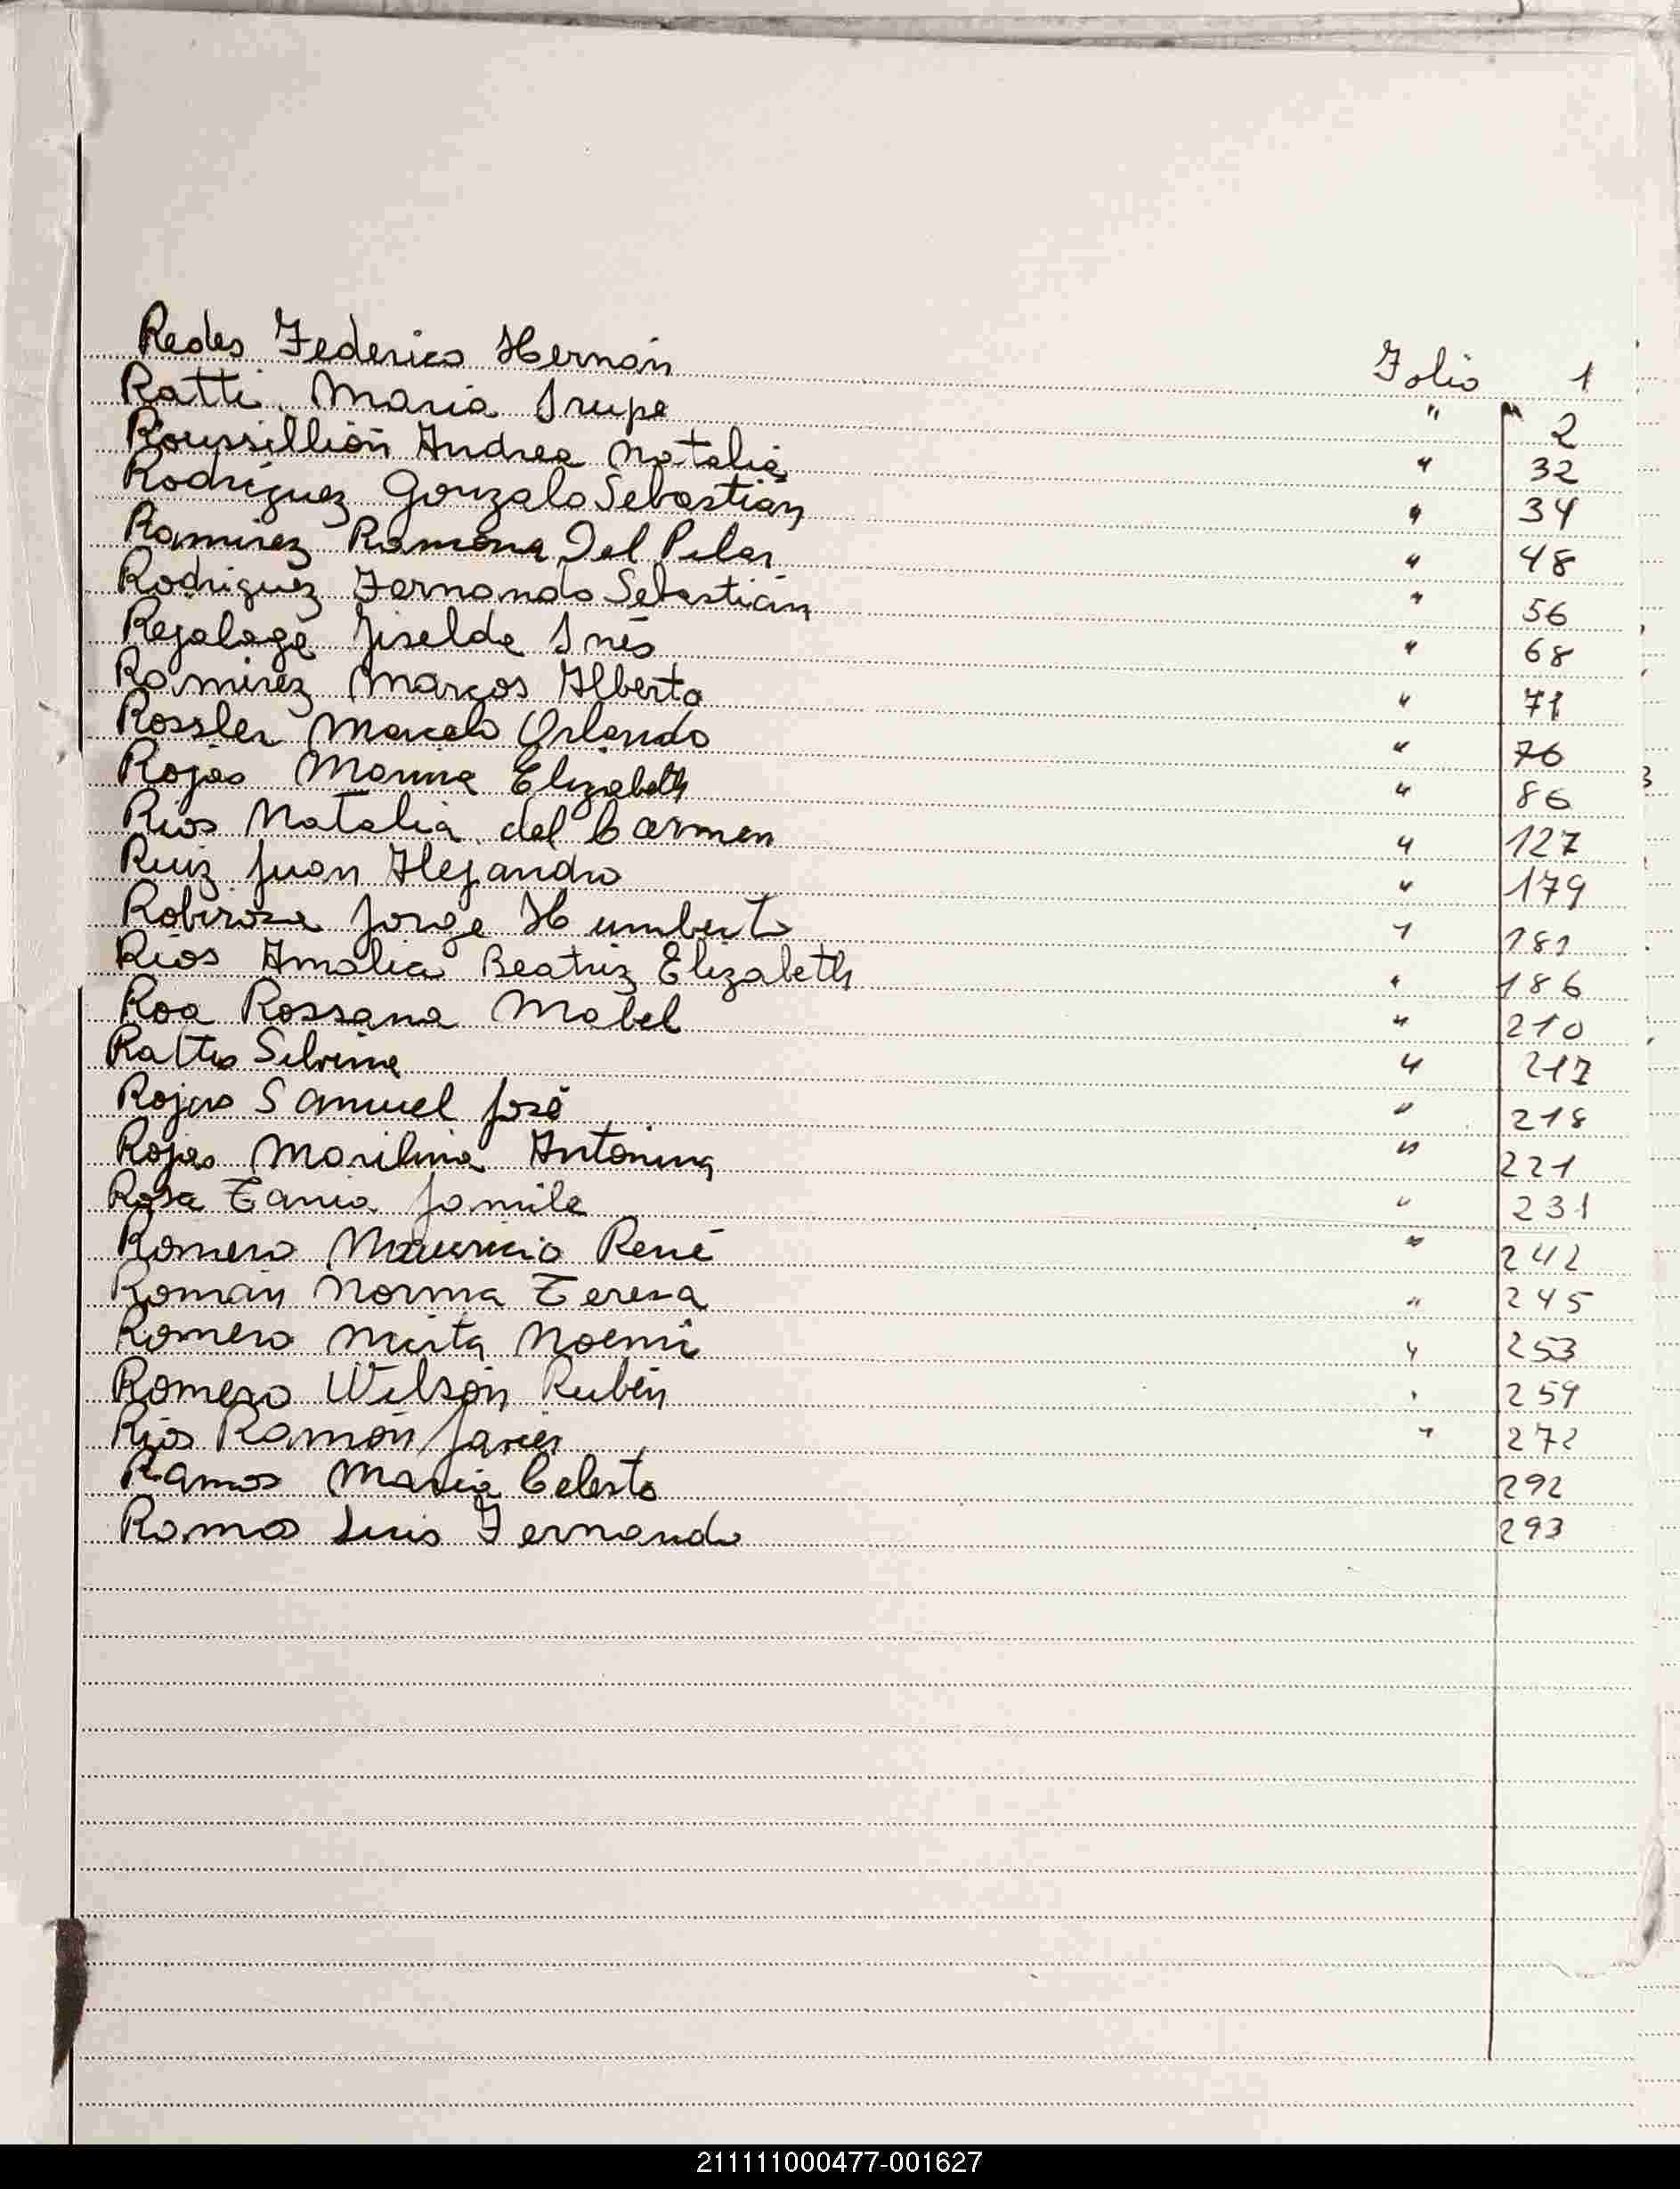 Redes Federico Hernán Folio 1
Ratti María Irupe " 2
Roussillión Andrea Natalia " 32
Rodríguez Gonzalo Sebastián " 34
Ramirez Ramona Del Pilar " 48
Rodriguez Fernando Sebastián " 56
Giselda Inés " 68
Ramirez Marcos Alberto " 71
Rossler Marcelo Orlando " 76
Rojas Marina Elizabeth " 86
Rios Natalia del Carmen " 127
Ruiz Juan Alejandro " 179
Robirosa Jorge Humberto " 181
Rios Amalia Beatriz Elizabeth " 186
Roa Rossana Mabel " 210
Silvina " 217
Rojas Samuel José " 218
Rojas Marilina Antonina " 221
Rosa Tania Jamile " 231
Romero Mauricio René " 242
Román Norma Teresa " 245
Romero Mirta Noemi " 253
Romero Wilson Rubén " 259
Rios Ramón Javier " 272
Ramos María Celeste 292
Ramos Luis Fernando 293
211111000477-001627